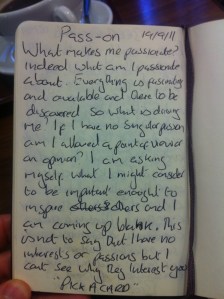 Pass-on 19/9/11
What makes me passionate?
Indeed what am I passionate
about. Everything is fascinating
and available and there to be
discovered so what is driving
me? If I have no singular passion
am I allowed a point of view or
an opinion? I am asking
myself what I might consider
to be important enough to
inspire others and I
am coming up blank. This
is not to say that I have no
interests or passions but I
cant see why they interest you
"PICK A CARD"